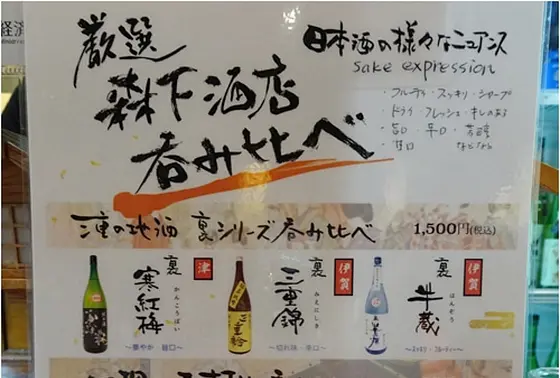 厳選
森下酒店
呑み比べ
日本酒の様々なニュアンス
sake expression
・フルーティ・スッキリ・シャープ
・ドライ・フレッシュ・キレのある
・旨口・辛口・芳醇
・甘口 などなど
三重の地酒 裏シリーズ呑み比べ 1,500円(税込)
裏 寒紅梅 かんこうばい 津
～華やか・旨口～
裏 三重錦 みえにしき 伊賀
～切れ味・辛口～
裏 半蔵 はんぞう 伊賀
経済